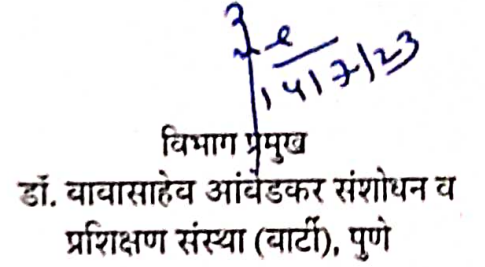 14/7/23
विभाग प्रमुख
डॉ. बाबासाहेब आंबेडकर संशोधन व
प्रशिक्षण संस्था (बार्टी), पुणे